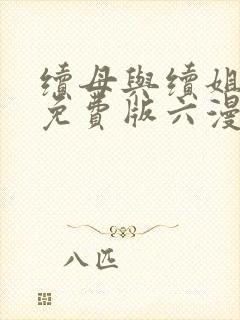 續母與續姐
免費版六漫
八匹